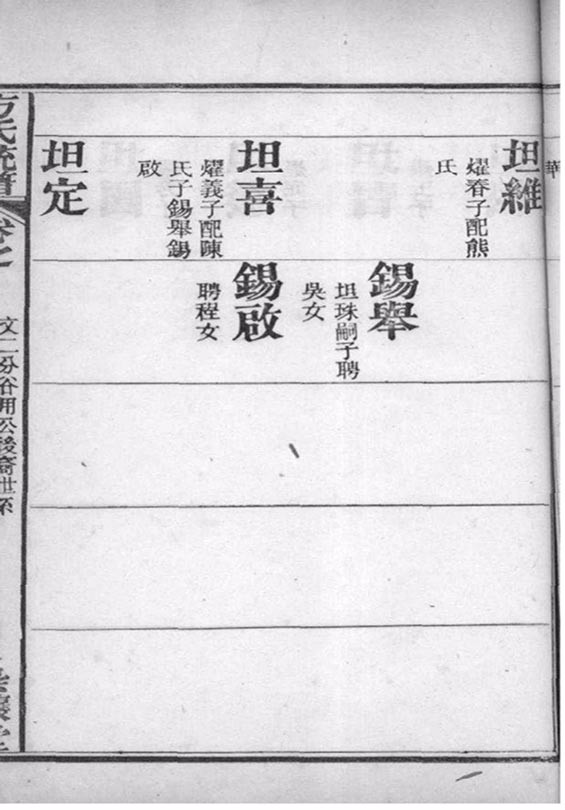 華
坦維
燿春子配熊
氏
錫舉
坦珠嗣子聘
吳女
坦喜
燿義子配陳
氏子錫舉錫
啟
錫啟
聘程女
坦定
方氏統
卷之
文二分谷用公後裔世系